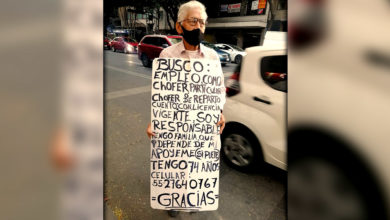 BUSCO:
EMPLEO COMO
CHOFER PARTICULAR
CHOFER DE REPARTO
CUENTO CON LICENCIA
VIGENTE, SOY
RESPONSABLE
TENGO FAMILIA QUE
DEPENDE DE MI
APOYEME SI PUEDE
TENGO 74 AÑOS
CELULAR:
5527640767
=GRACIAS=